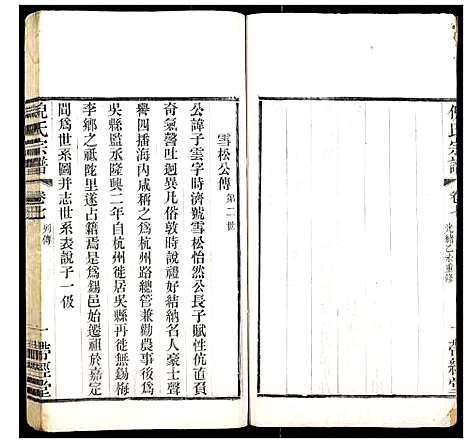 倪氏宗譜
卷七
光緒乙未重修
一
帶經堂
雪松公傳
第二世
公諱子雲字時濟號雪松怡然公長子賦性伉直負
奇氣謦吐迥異凡俗敦時說禮好結納名人豪士聲
譽四播海內咸稱之為杭州路總管兼勸農事後為
吳縣監丞隆興二年自杭州徙居吳縣再徙無錫梅
李鄉之祗陀里遂占籍焉是為錫邑始遷祖於嘉定
間為世系圖并志世系表說子一伋
倪氏宗譜
卷七
列傳
一
帶經堂